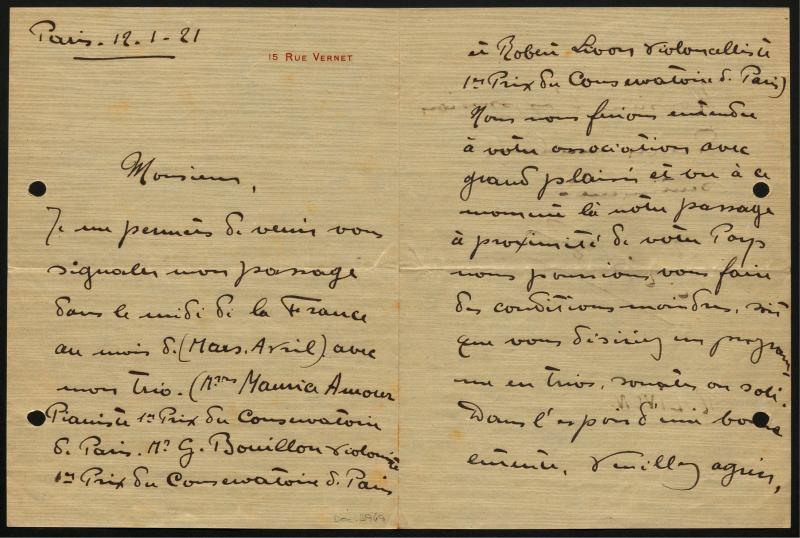 Paris. 12.1-21
15 RUE VERNET
Monsieur,
Je me permets de venir vous
signaler mon passage
dans le midi de la France
au mois de (Mars. Avril) avec
mon trio. (Mrs Maurice Amour
Pianiste 1er Prix du Conservatoire
de Paris. Mr G. Bouillon violoniste
1er Prix du Conservatoire de Paris
et Robert Livon violoncelliste
1er Prix du Conservatoire de Paris)
Nous nous ferions entendre
à votre association avec
grand plaisir et vu à ce
moment là notre passage
à proximité de votre Pays
nous pourrions vous faire
des conditions moindres, soit
que vous désiriez un program-
me en trios, sonates ou soli.
Dans l'espoir d'une bonne
entente, veuillez agréer,